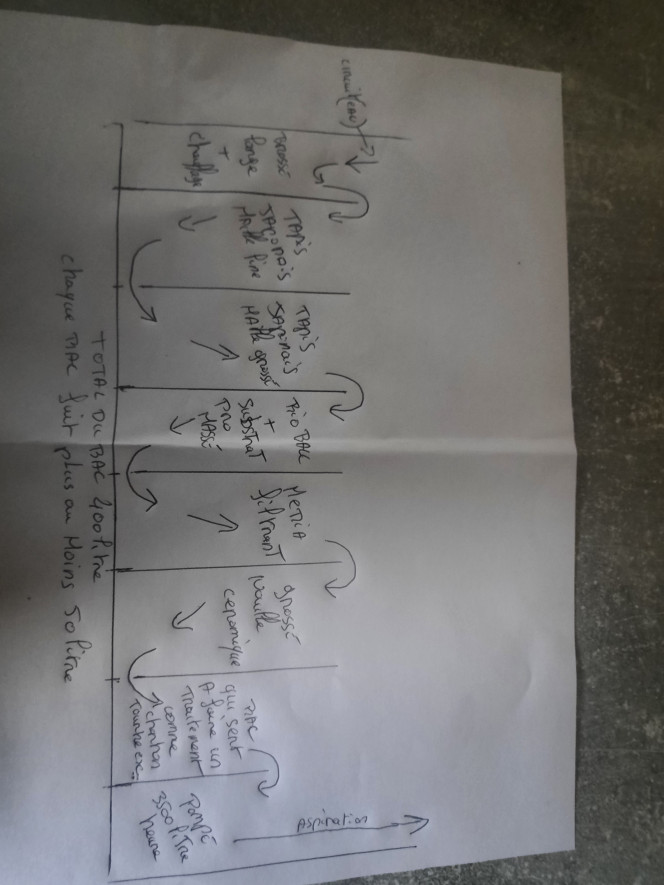 circuit(eau)
grosse
éponge
+
chauffage
TAPIS
JAPONAIS
Maille fine
TAPIS
JAPONAIS
Maille grosse
BIO BALL
+
Substrat
pro
MASSE
MEDIA
filtrant
grosse
nouille
ceramique
BAC
qui sert
A faire un
Traitement
comme
charbon
Tourbe ex..
Pompe
3500 litre
heure
Aspiration
TOTAL DU BAC 400 litre
chaque BAC fait plus ou Moins 50 litre